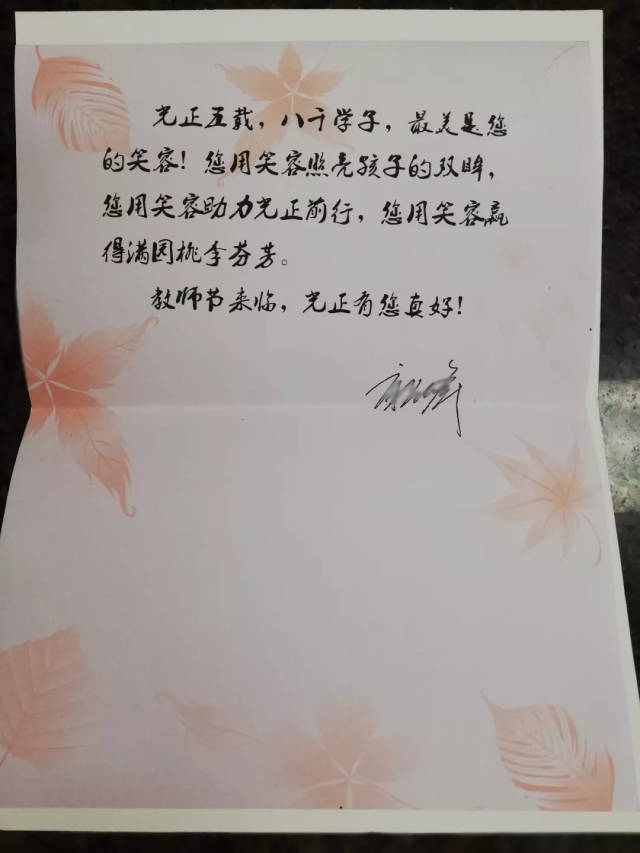 光正五载，八千学子，最美是您
的笑容！您用笑容照亮孩子的双眸，
您用笑容助力光正前行，您用笑容赢
得满园桃李芬芳。
教师节来临，光正有您真好！